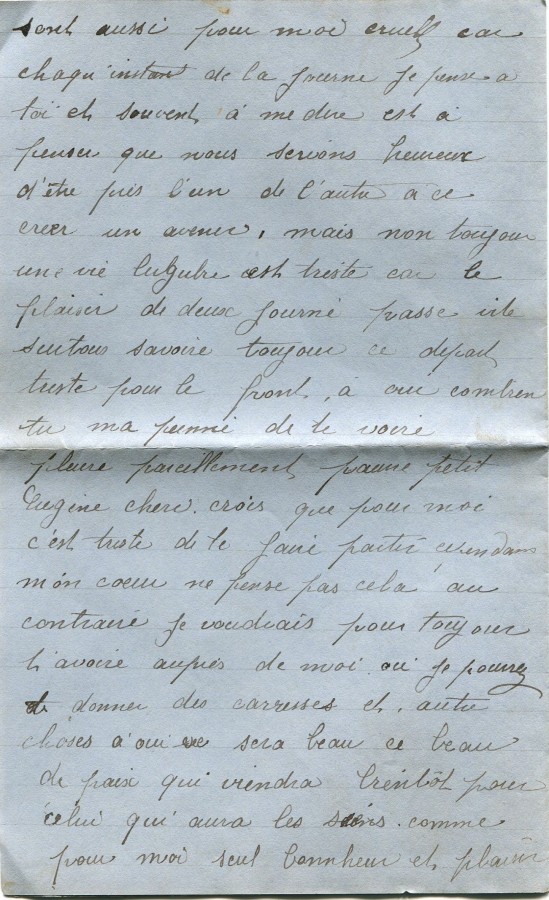 sont aussi pour moi cruelle car
chaqu'instant de la journe je pense a
toi et souvent à me dire est à
penser que nous serions heureux
d'être près l'un de l'autre a ce
creer un avenir, mais non toujour
une vie lugubre est triste car le
plaisir de deux journé passe vite
surtous savoire toujour ce depart
triste pour le front, à oui combien
tu ma penné de te voire
pleure pareillement pauvre petit
Eugène chere. crois que pour moi
c'est triste de te faire partir cependans
mon coeur ne pense pas cela au
contraire je voudrais pour toujour
t'avoire auprès de moi ou je pourrez
te donner des carresses et autre
choses à oui ce sera beau ce beau
de paix qui viendra bientôt pour
celui qui aura les siens. comme
pour moi seul bonnheur et plaisir